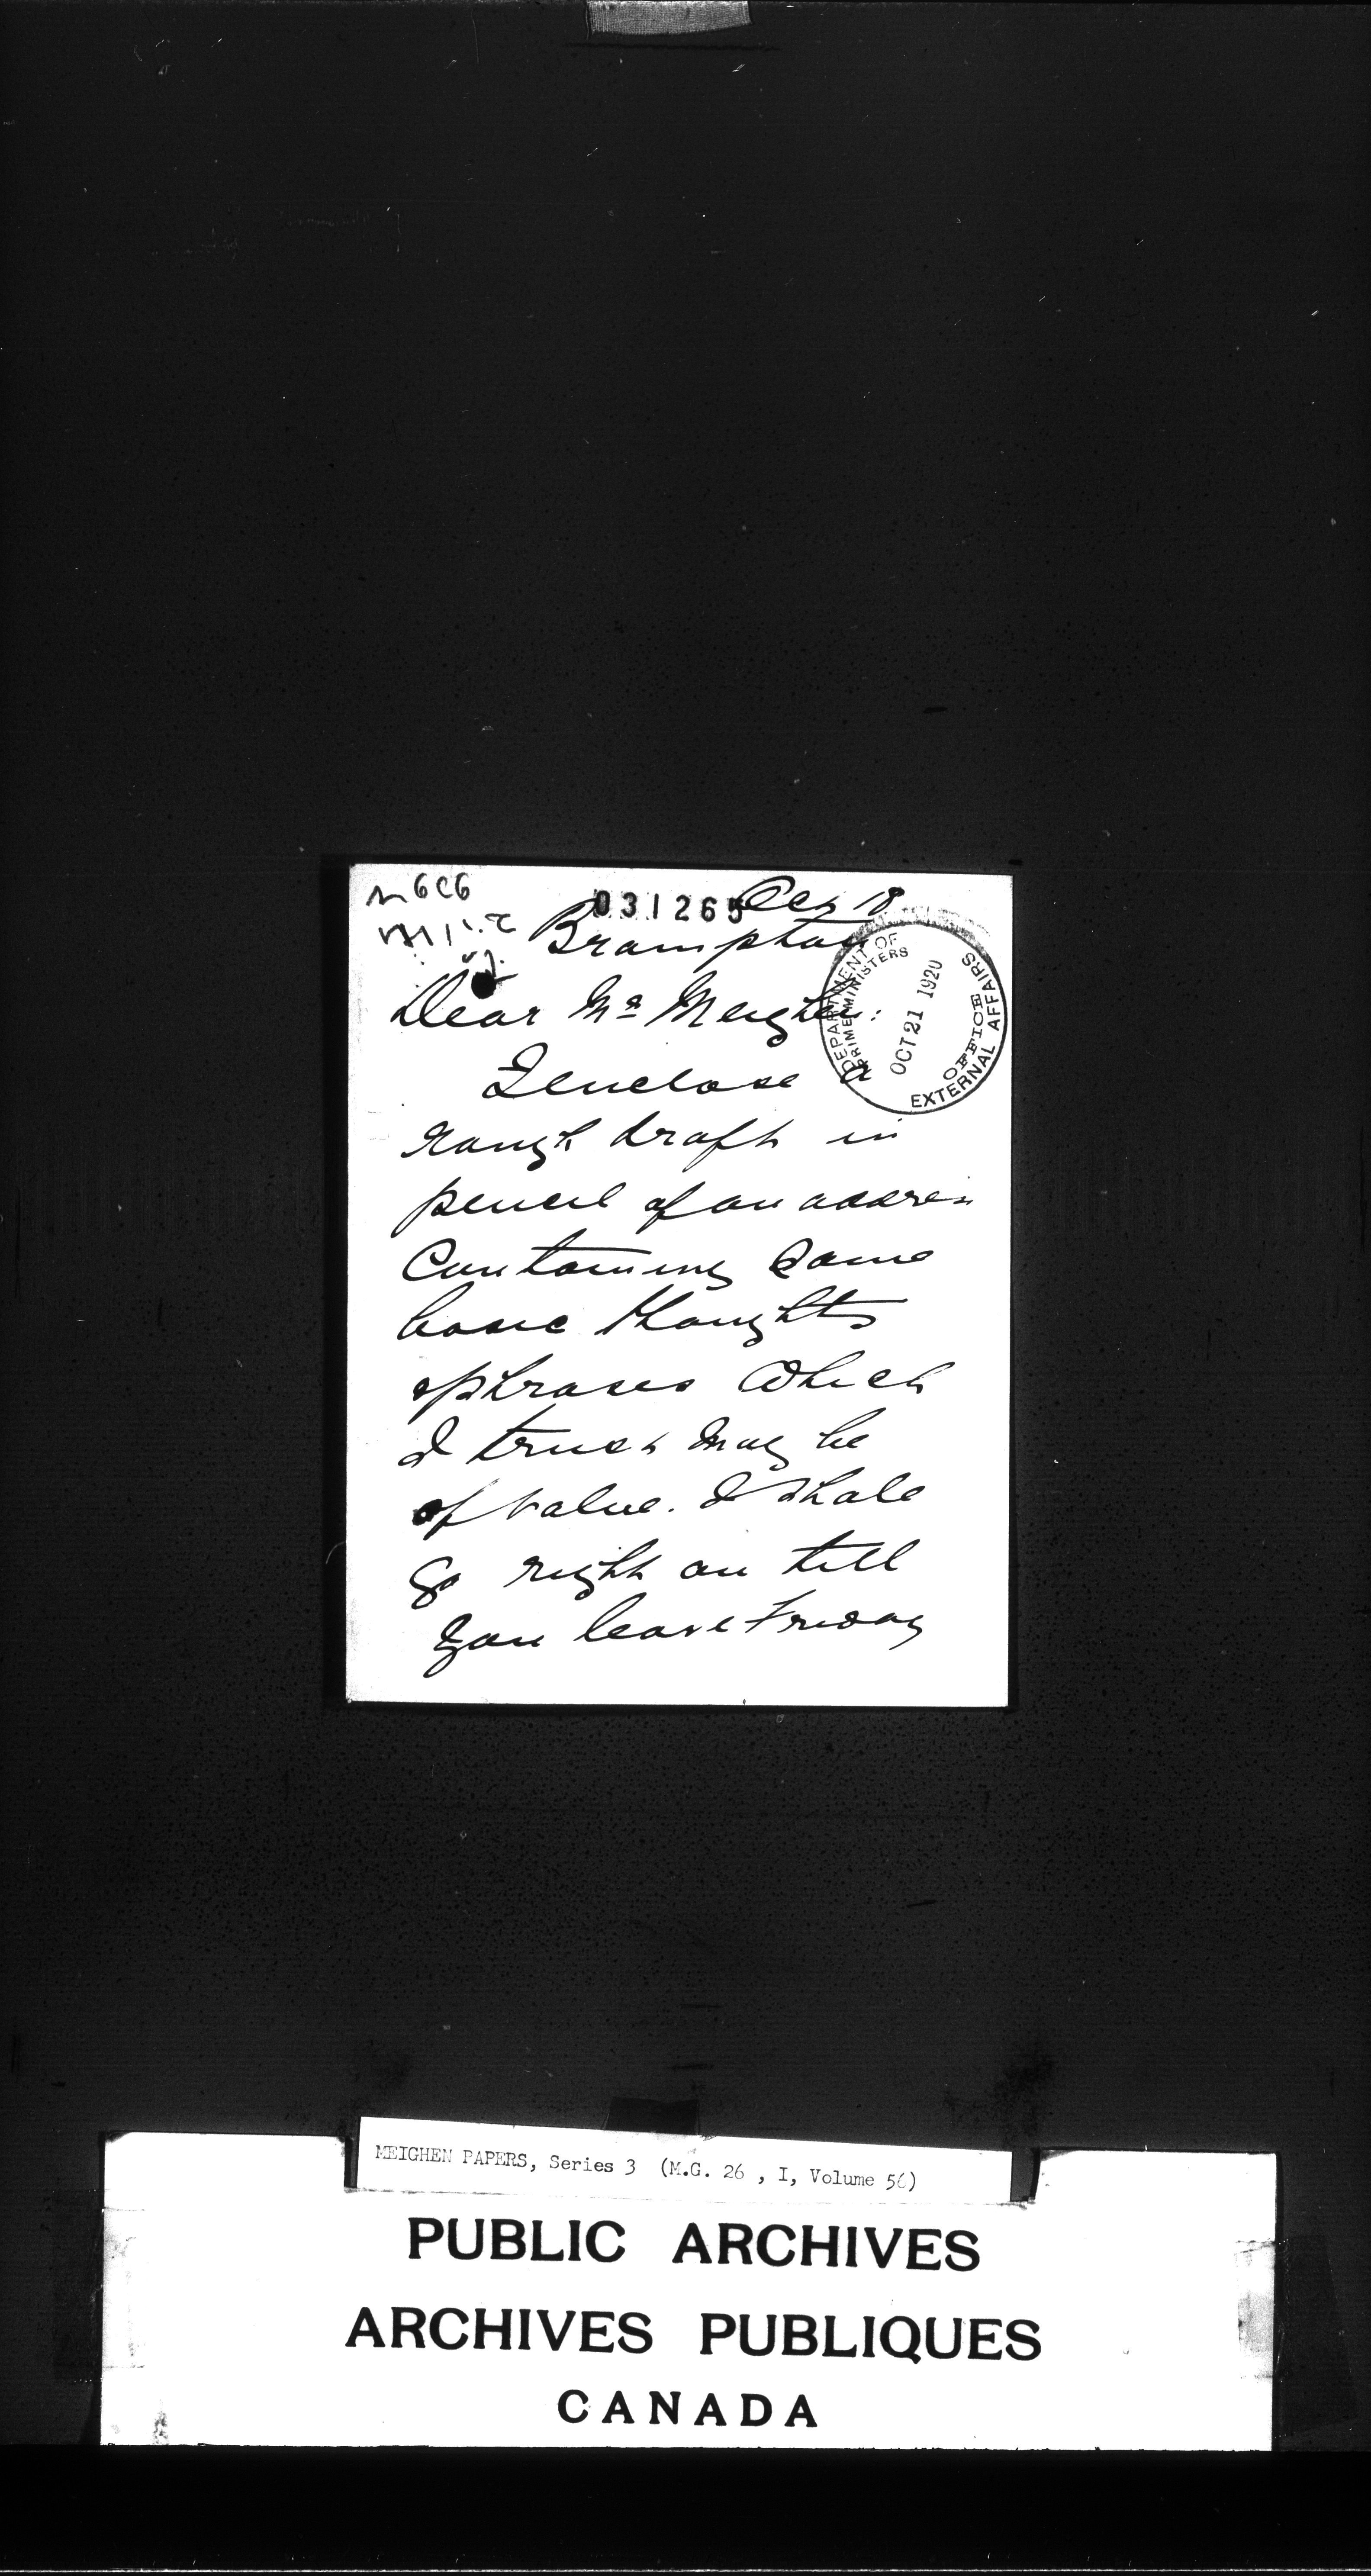 031265 Oct 18
Brampton
Dear Mr Meighen:
I enclose a
rough draft in
pencil of an address
Containing some
basic thoughts
& phrases which
I trust may be
of value. I shall
go right on till
you leave Friday
DEPARTMENT OF
PRIME MINISTERS
OCT 21 1920
OFFICE
EXTERNAL AFFAIRS
MEIGHEN PAPERS, Series 3 (M.G. 26 , I, Volume 56)
PUBLIC ARCHIVES
ARCHIVES PUBLIQUES
CANADA